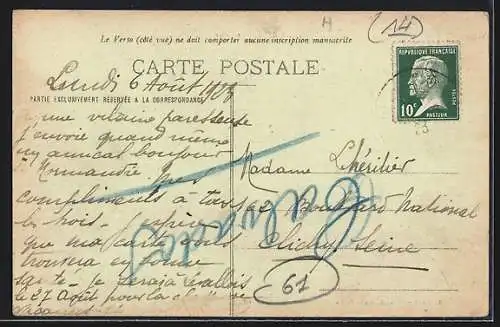 H
14
Le Verso (côté vue) ne doit comporter aucune inscription manuscrite
CARTE POSTALE
REPUBLIQUE FRANÇAISE
10c
POSTES
PASTEUR
Lundi 6 Août
PARTIE EXCLUSIVEMENT RÉSERVÉE A LA CORRESPONDANCE
une vilaine paresseuse
envoie quand même
un amical bonjour
Normandie
compliments à
trois
que ma carte vous
trouvera en bonne
santé je serai à Levallois
le 27 Août pour la
Madame Lhéritier
Boulevard National
Clichy Seine
Calvados
61